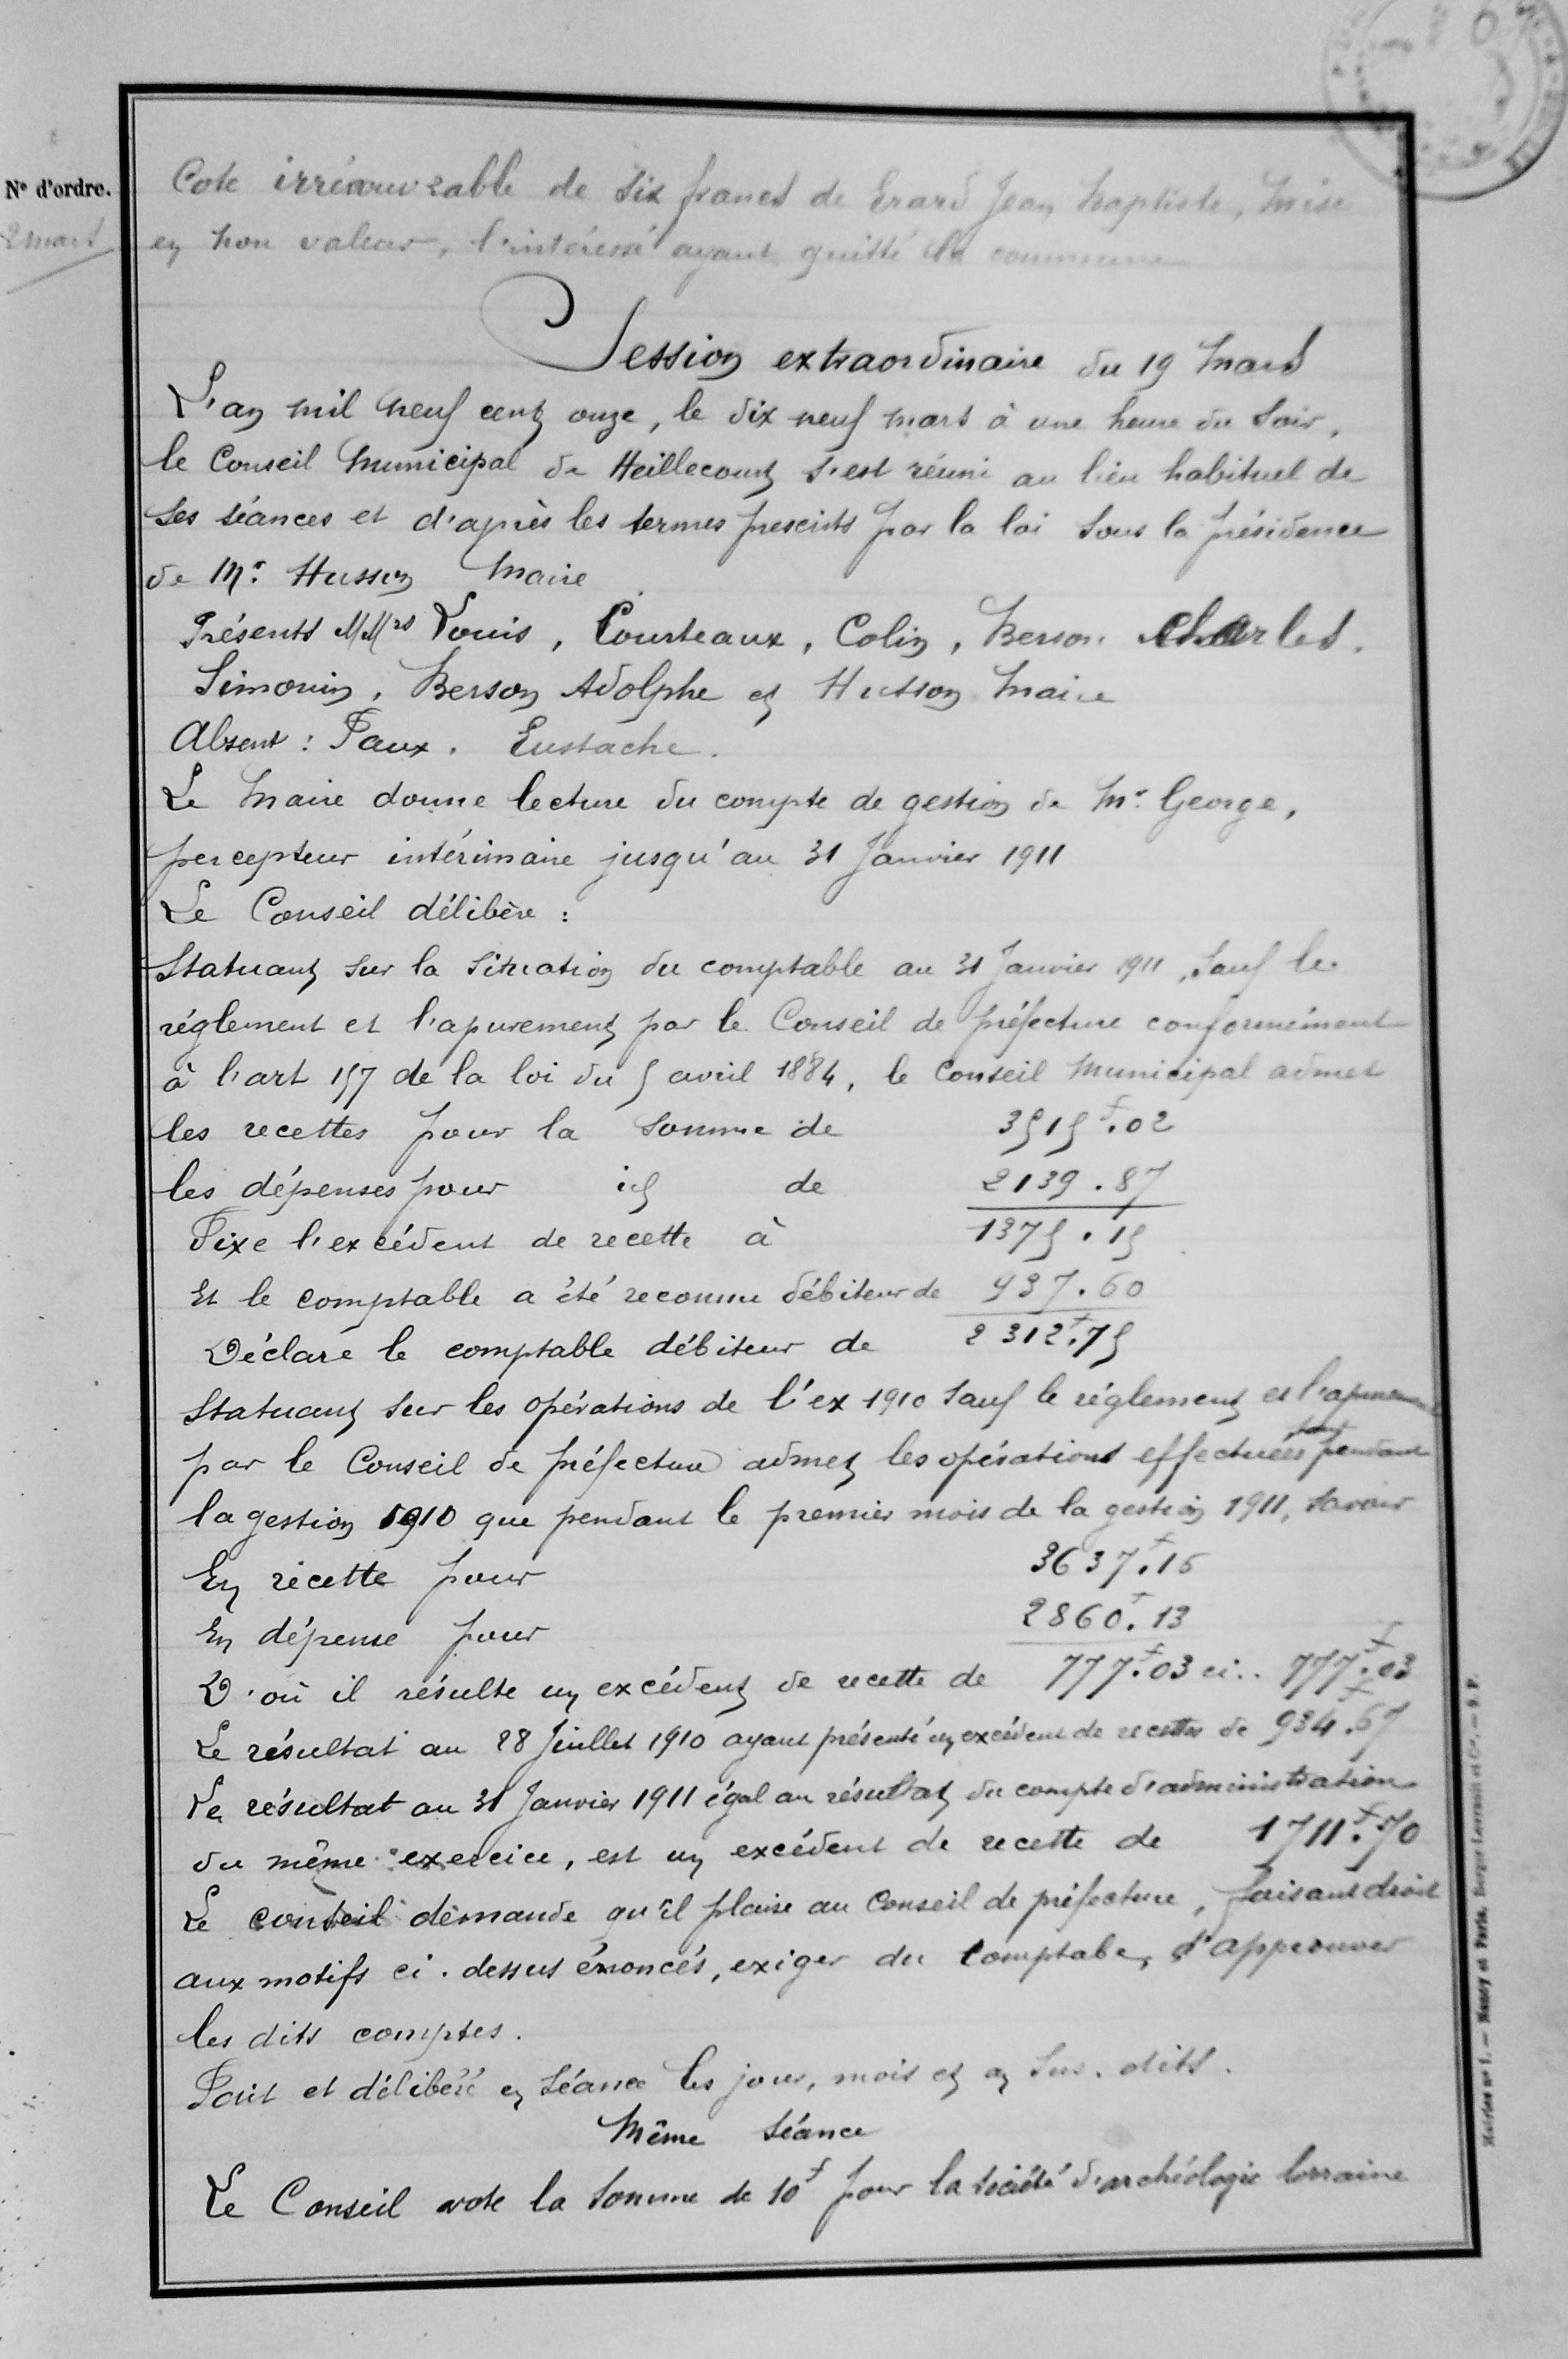 N° d'ordre.
Cote irrécouvrable de six francs de Erard Jean Baptiste, mise
en non valeur, l'intéressé ayant quitté la commune
Session extraordinaire du 19 Mars
L'an mil neuf cent onze, le dix neuf mars à une heure du soir,
le Conseil Municipal de Heillecourt s'est réuni au lieu habituel de
ses séances et d'après les termes prescrits par la loi sous la présidence
de Mr. Husson Maire
Présents MMrs Louis, Courteaux, Colin, Berson Charles,
Simonin, Berson Adolphe et Husson Maire
Absent : Faux. Eustache.
Le Maire donne lecture du compte de gestion de Mr. George,
percepteur intérimaire jusqu'au 31 Janvier 1911
Le Conseil délibère :
Statuant sur la situation du comptable au 31 Janvier 1911, sauf le
réglement et l'apurement par le Conseil de préfecture conformément
à l'art 157 de la loi du 5 avril 1884, le Conseil Municipal admet
les recettes pour la somme de 3515f.02
les dépenses pour id de 2139.87
Fixe l'excédent de recette à 1375.15
Et le comptable a été reconnu débiteur de 937.60
Déclare le comptable débiteur de 2312f.75
Statuant sur les opérations de l'ex 1910 sauf le réglement et l'apurement
par le Conseil de préfecture admet les opérations effectuées tant pendant
la gestion 1910 que pendant le premier mois de la gestion 1911, savoir
En recette pour 3637f.16
En dépense pour 2860f.13
D'où il résulte un excédent de recette de 777f.03 ci.. 777f.03
Le résultat au 28 Juillet 1910 ayant présenté un excédent de recettes de 934f.67
Le résultat au 31 Janvier 1911 égal au résultat du compte d'administration
du même exercice, est un excédent de recette de 1711f.70
Le conseil demande qu'il plaise au Conseil de préfecture, faisant droit
aux motifs ci. dessus énoncés, exiger du comptabe, d'approuver
les dits comptes.
Fait et délibéré en séance les jour, mois et an sus. dits.
Même séance
Le Conseil vote la somme de 10f pour la société d'archéologie lorraine